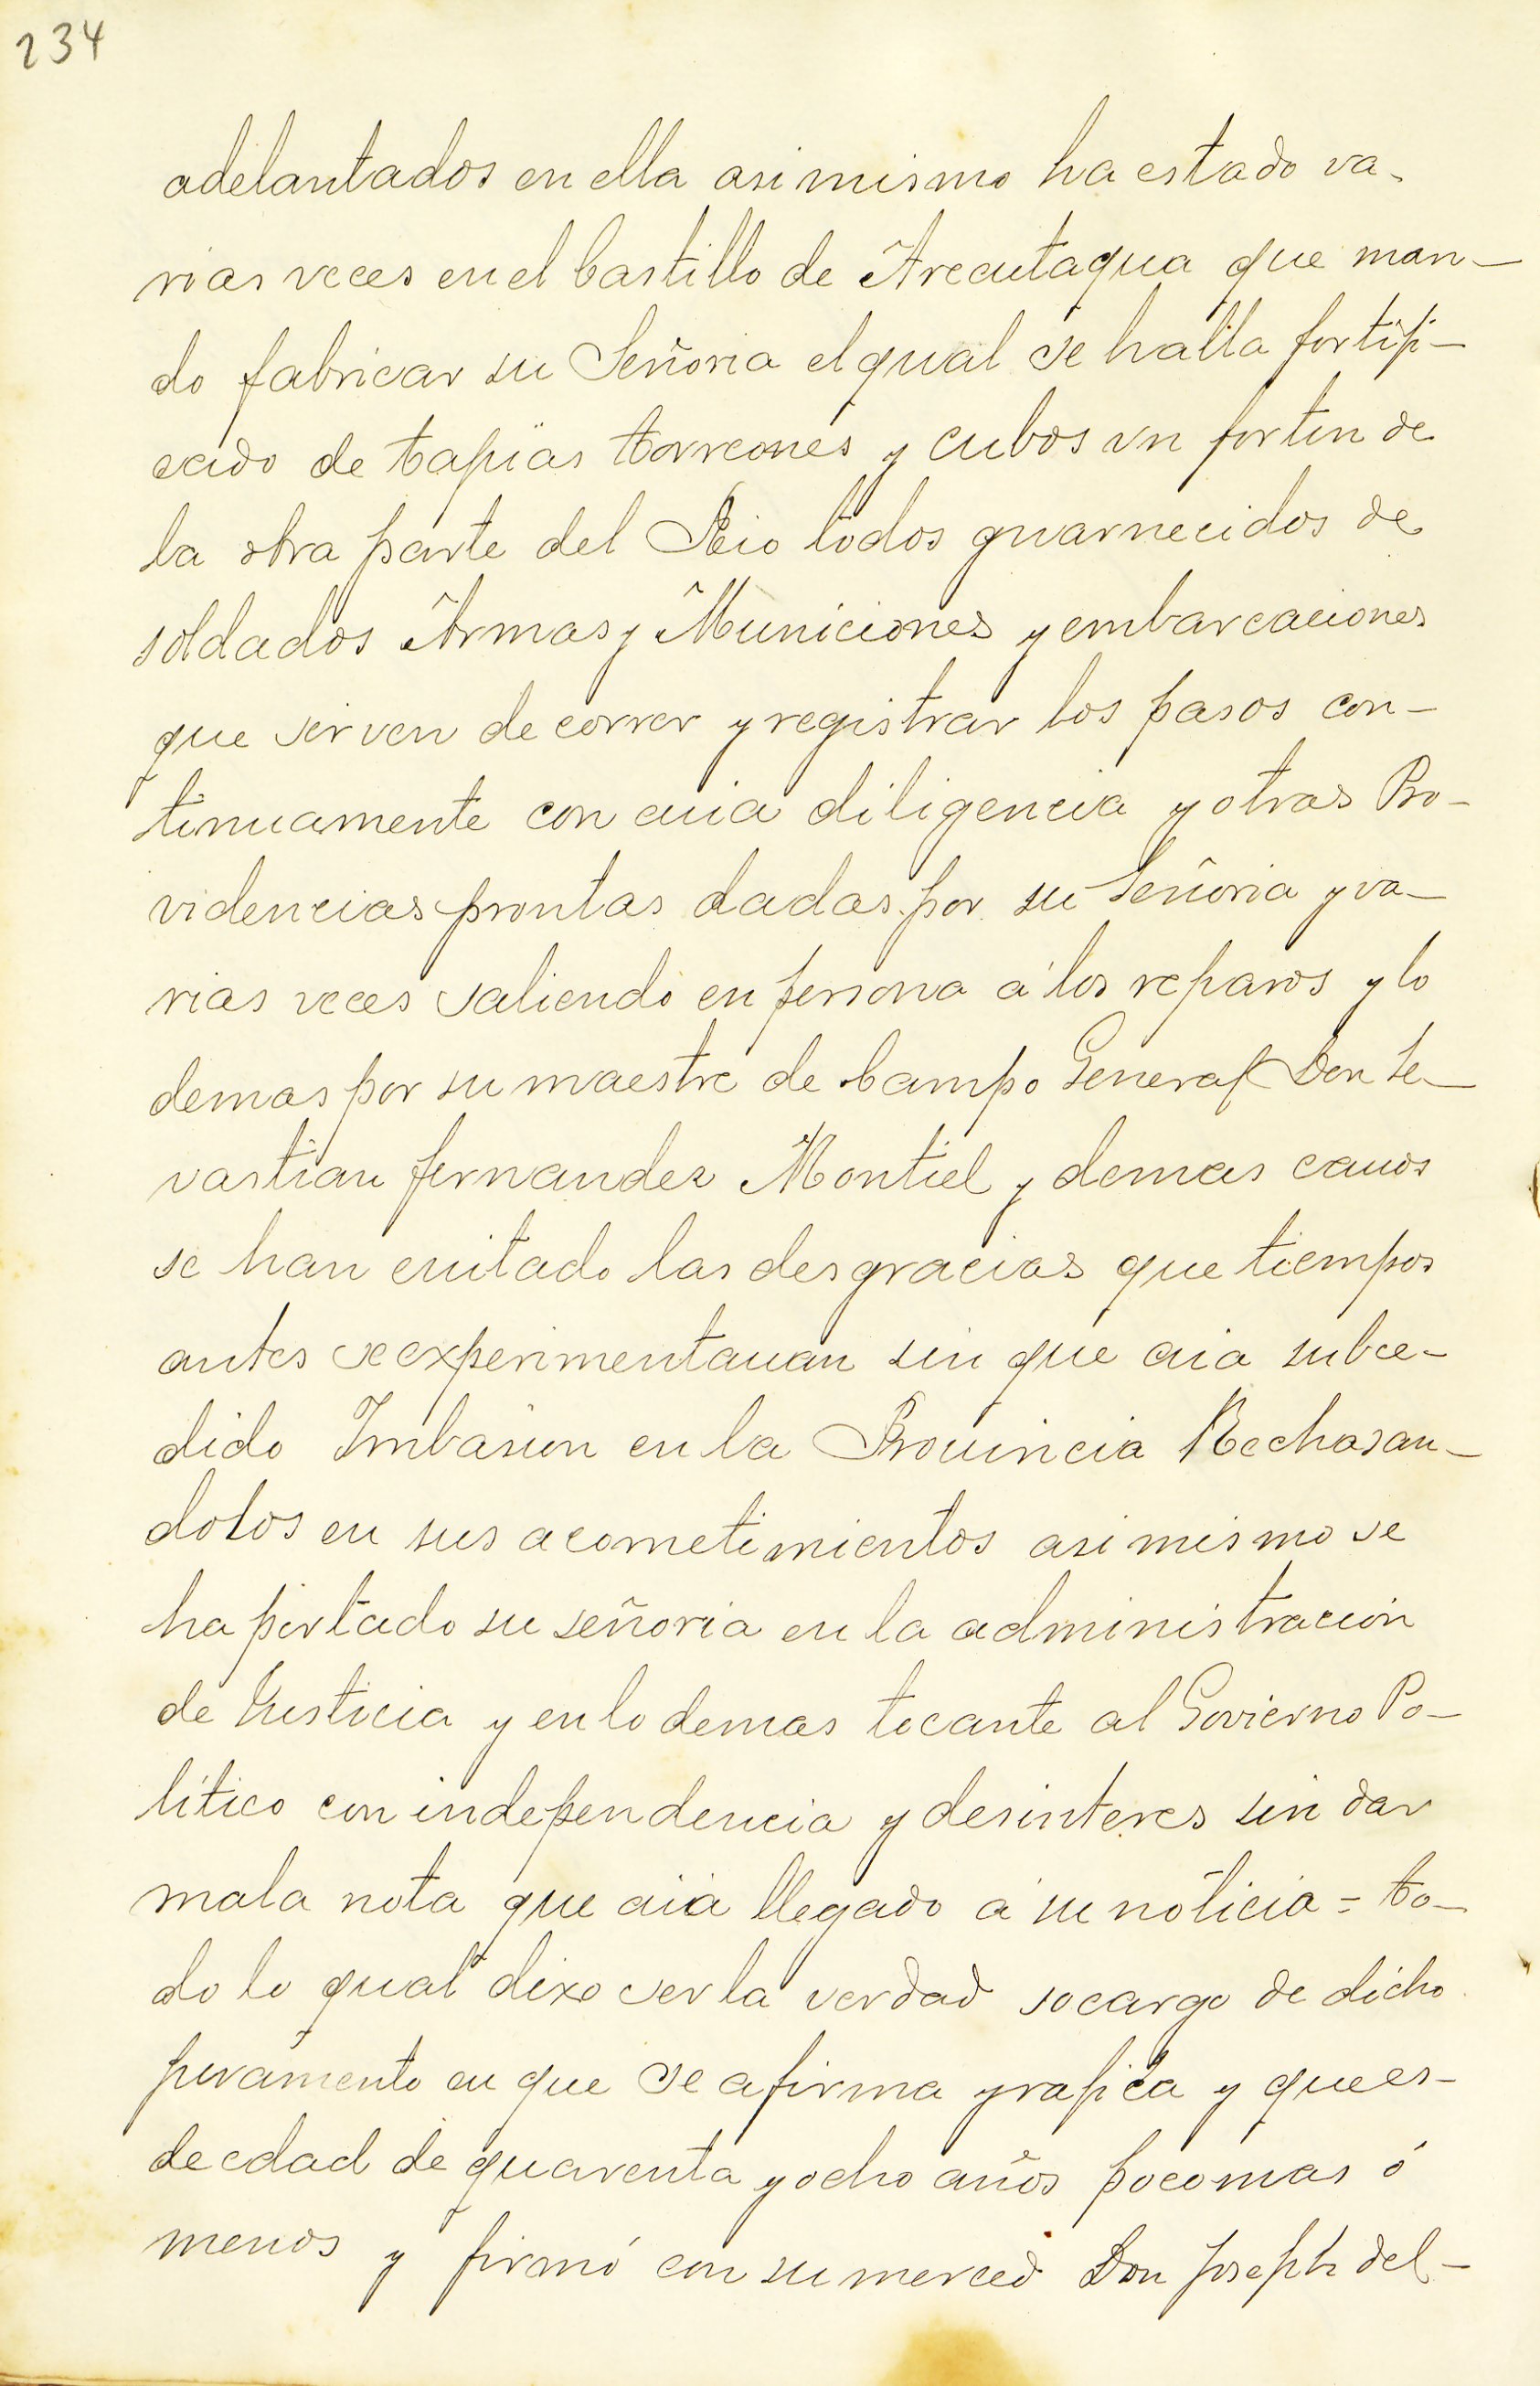 234
adelantados en ella asi mismo ha estado va-
rias veces en el Castillo de Arecutaqua que man-
do fabricar su Señoria el qual se halla fortifi-
cado de tapias torreones y cubos vn fortin de
la otra parte del Rio todos guarnecidos de
soldados Armas y Municiones y embarcaciones
que sirven de correr y registrar los pasos con-
tinuamente con cuia diligencia y otras Pro-
videncias prontas dadas por su Señoria y va-
rias veces saliendo en persona á los reparos y lo
demas por su maestre de Campo General Don Se-
vastian fernandez Montiel y demas cauos
se han euitado las desgracias que tiempos
antes se experimentauan sin que aia subce-
dido Imbasion en la Prouincia Rechasan-
dolos en sus acometimientos asi mismo se
ha portado su señoria en la administracion
de Justicia y en lo demas tocante al Govierno Po-
lítico con independencia y desinteres sin dar
mala nota que aia llegado á su noticia = to-
do lo qual dixo ser la verdad so cargo de dicho
juramento en que se afirma y ratifica y que es-
de edad de quarenta y ocho años poco mas ó
menos y firmó con su merced Don Joseph del-